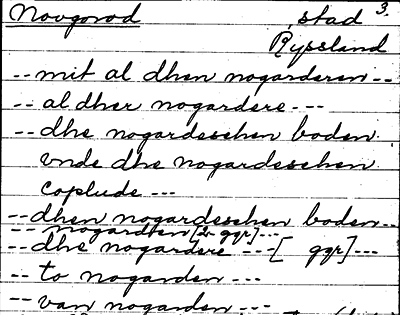 Novgorod stad 3.
Ryssland
-- mit al dhen nogarderen --
-- al dher nogardere ---
-- dhe nogardeschen boden
vnde dhe nogardeschen
coplude ---
-- dhen nogardeschen boden --
-- nogardien [2 ggr] ---
-- dhe nogardere --- [ ggr] ---
-- to nogarden ---
-- van nogarden ---